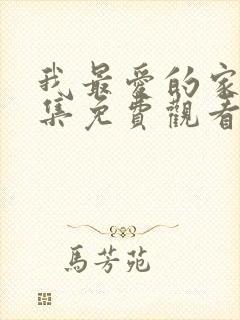 我最愛的家
集免費觀看
馬芳苑